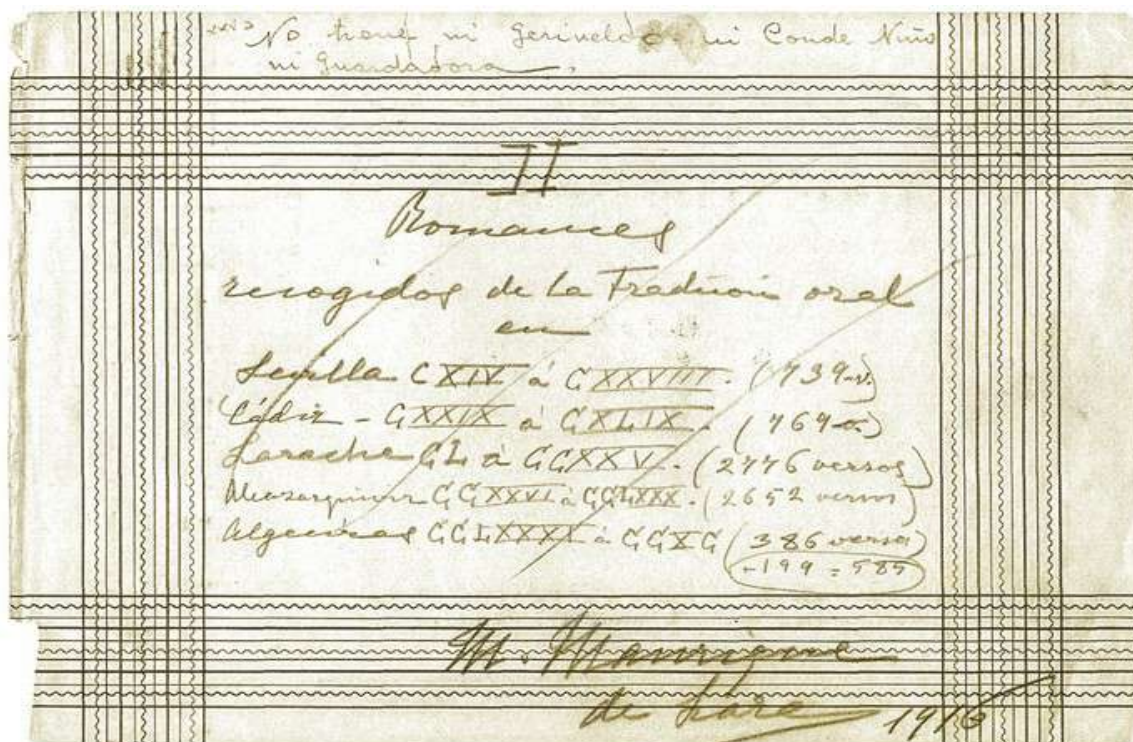 No tiene ni Gerineldo ni Conde Niño
ni Guardadora.
II
Romances
recogidos de la Tradición oral
en
Sevilla CXIV á CXXVIII. (739 v.)
Cádiz - CXXIX á CXLIX. (769 v.)
Larache CL á CCXXV. (2776 versos)
Alcazarquivir CCXXVI á CCLXXX. (2652 versos)
Algeciras CCLXXXI á CCXC (386 versos)
+199 = 585
M. Manrique
de Lara 1916